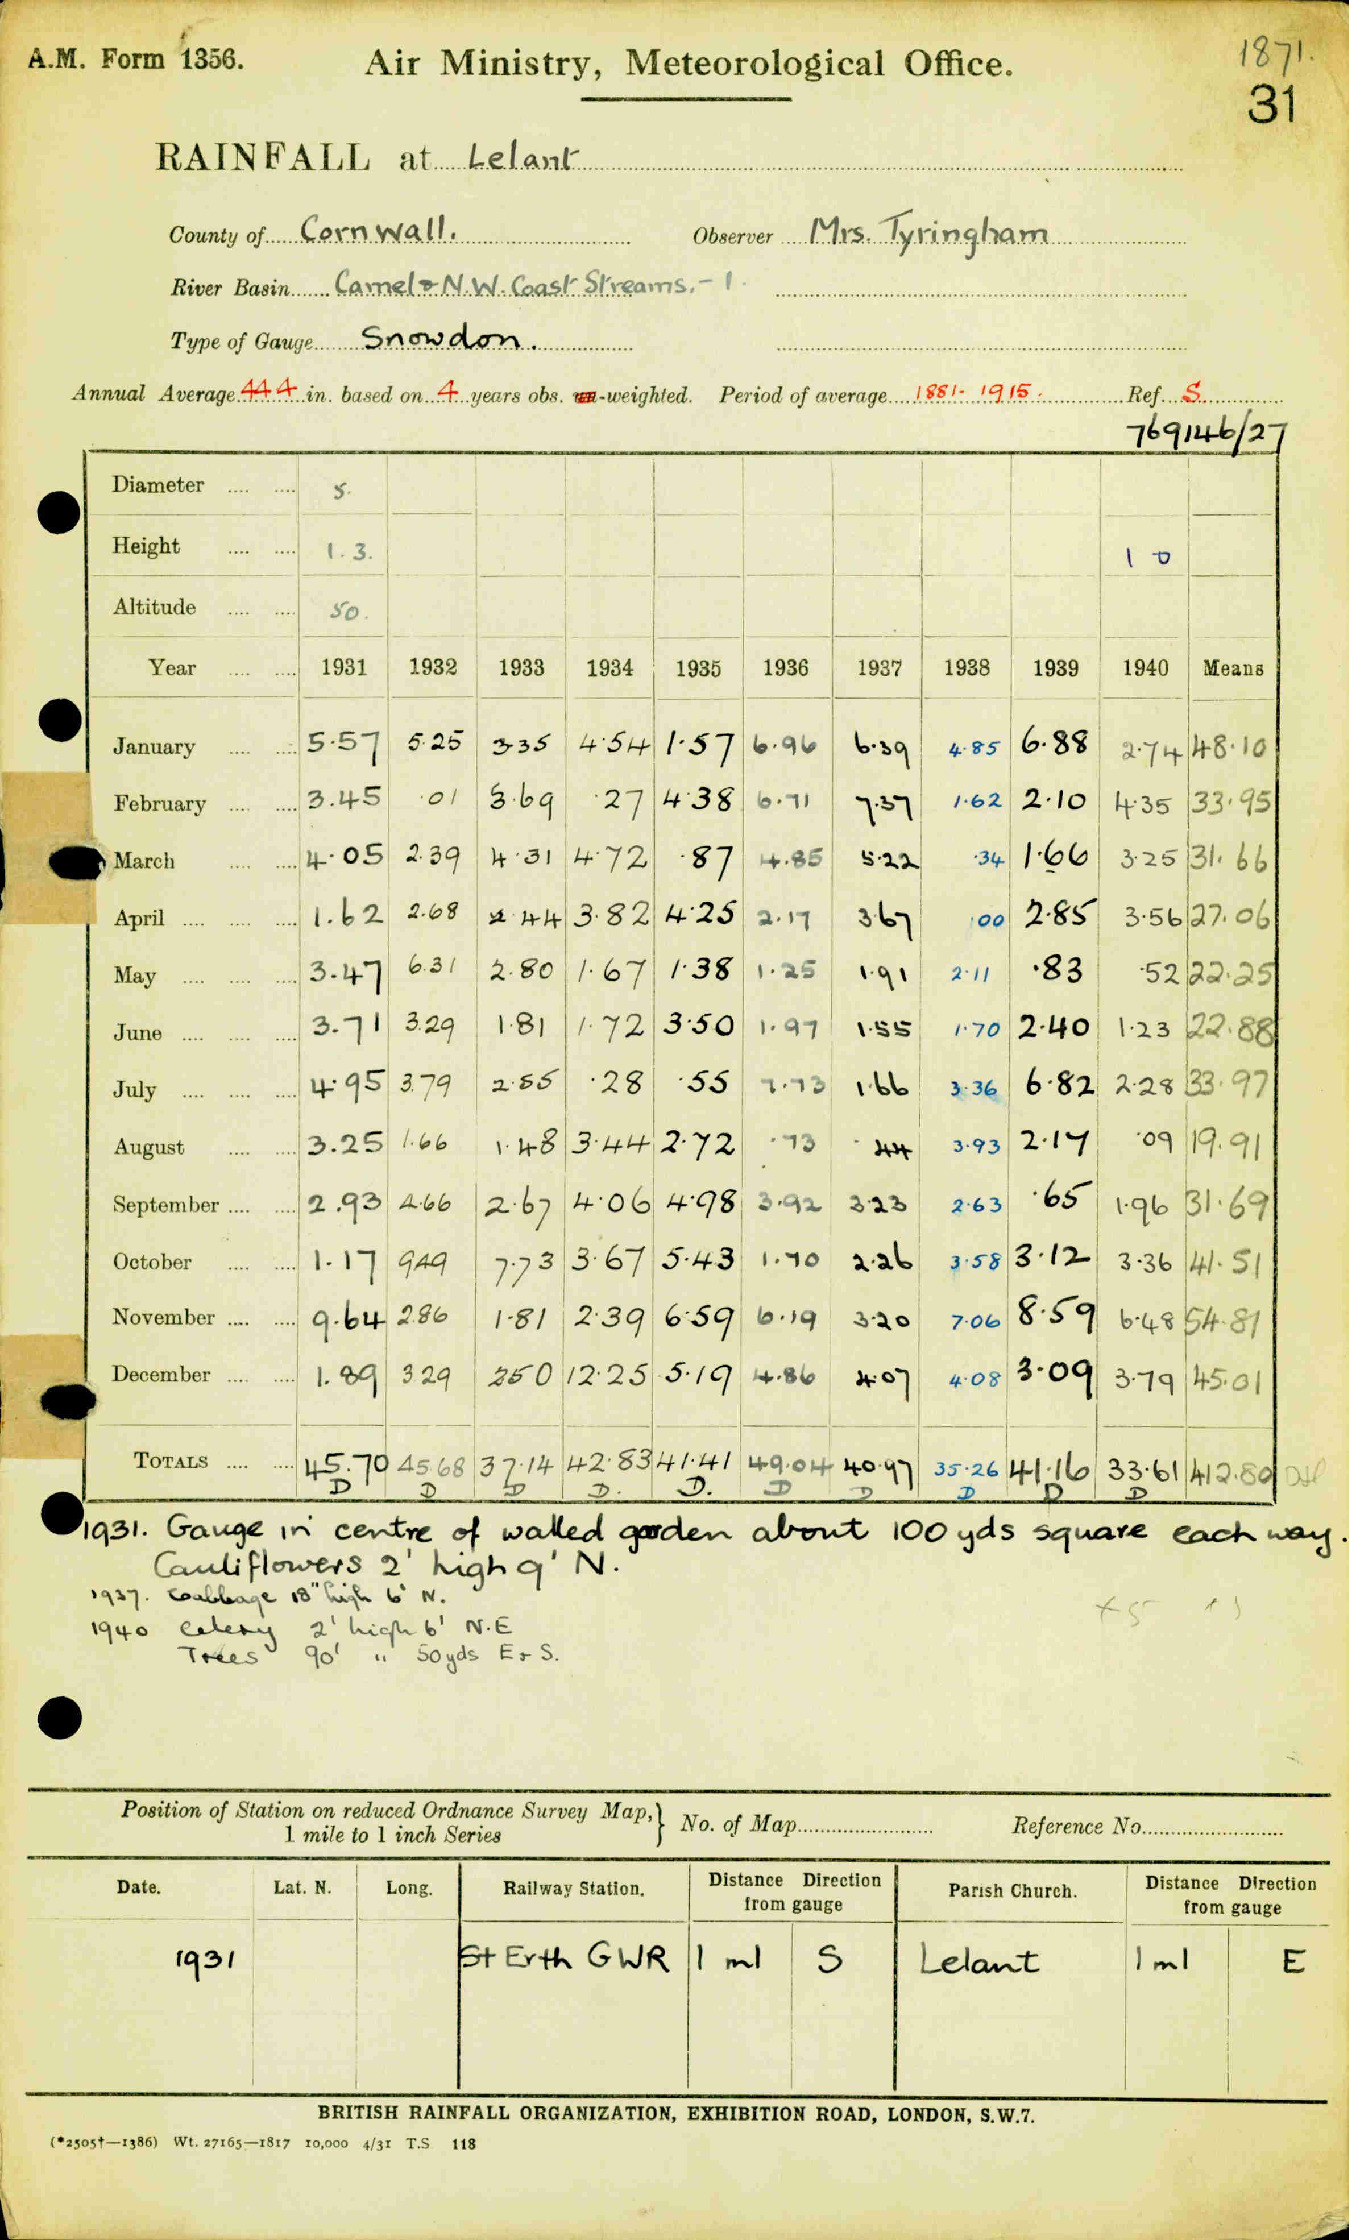 A.M. Form 1356.
Air Ministry, Meteorological Office.
1871.
31
RAINFALL at Lelant
County of Cornwall. Observer Mrs. Tyringham
River Basin Camel & N.W. Coast Streams.- 1.
Type of Gauge Snowdon.
Annual Average 44.4 in. based on 4 years obs. un-weighted. Period of average 1881-1915. Ref. S.
769146/27
Diameter .... .... 5.
Height .... .... 1. 3. 1 0
Altitude .... .... 50.
Year .... .... 1931 1932 1933 1934 1935 1936 1937 1938 1939 1940 Means
January .... .... 5.57 5.25 3.35 4.54 1.57 6.96 6.39 4.85 6.88 2.74 48.10
February .... .... 3.45 .01 3.69 .27 4.38 6.71 7.37 1.62 2.10 4.35 33.95
March .... .... 4.05 2.39 4.31 4.72 .87 4.85 5.22 .34 1.66 3.25 31.66
April .... .... .... 1.62 2.68 2.44 3.82 4.25 2.17 3.67 .00 2.85 3.56 27.06
May .... .... .... 3.47 6.31 2.80 1.67 1.38 1.25 1.91 2.11 .83 .52 22.25
June .... .... .... 3.71 3.29 1.81 1.72 3.50 1.97 1.55 1.70 2.40 1.23 22.88
July .... .... .... 4.95 3.79 2.55 .28 .55 7.73 1.66 3.36 6.82 2.28 33.97
August .... .... 3.25 1.66 1.48 3.44 2.72 .73 .44 3.93 2.17 .09 19.91
September .... .... 2.93 4.66 2.67 4.06 4.98 3.92 3.23 2.63 .65 1.96 31.69
October .... .... 1.17 9.49 7.73 3.67 5.43 1.70 2.26 3.58 3.12 3.36 41.51
November .... .... 9.64 2.86 1.81 2.39 6.59 6.19 3.20 7.06 8.59 6.48 54.81
December .... .... 1.89 3.29 2.50 12.25 5.19 4.86 4.07 4.08 3.09 3.79 45.01
TOTALS .... .... 45.70 45.68 37.14 42.83 41.41 49.04 40.97 35.26 41.16 33.61 412.80
D D D D. D. D D D D D
1931. Gauge in centre of walled garden about 100 yds square each way.
Cauliflowers 2' high 9' N.
1937. Cabbage 18" high 6' N.
1940 Celery 2' high 6' N.E
Trees 90' " 50yds E & S.
Position of Station on reduced Ordnance Survey Map, } No. of Map Reference No.
1 mile to 1 inch Series
Date. Lat. N. Long. Railway Station. Distance Direction from gauge Parish Church. Distance Direction from gauge
1931 St Erth GWR 1 ml S Lelant 1 ml E
BRITISH RAINFALL ORGANIZATION, EXHIBITION ROAD, LONDON, S.W.7.
(*2505†—1386) Wt. 27165—1817 10,000 4/31 T.S 118